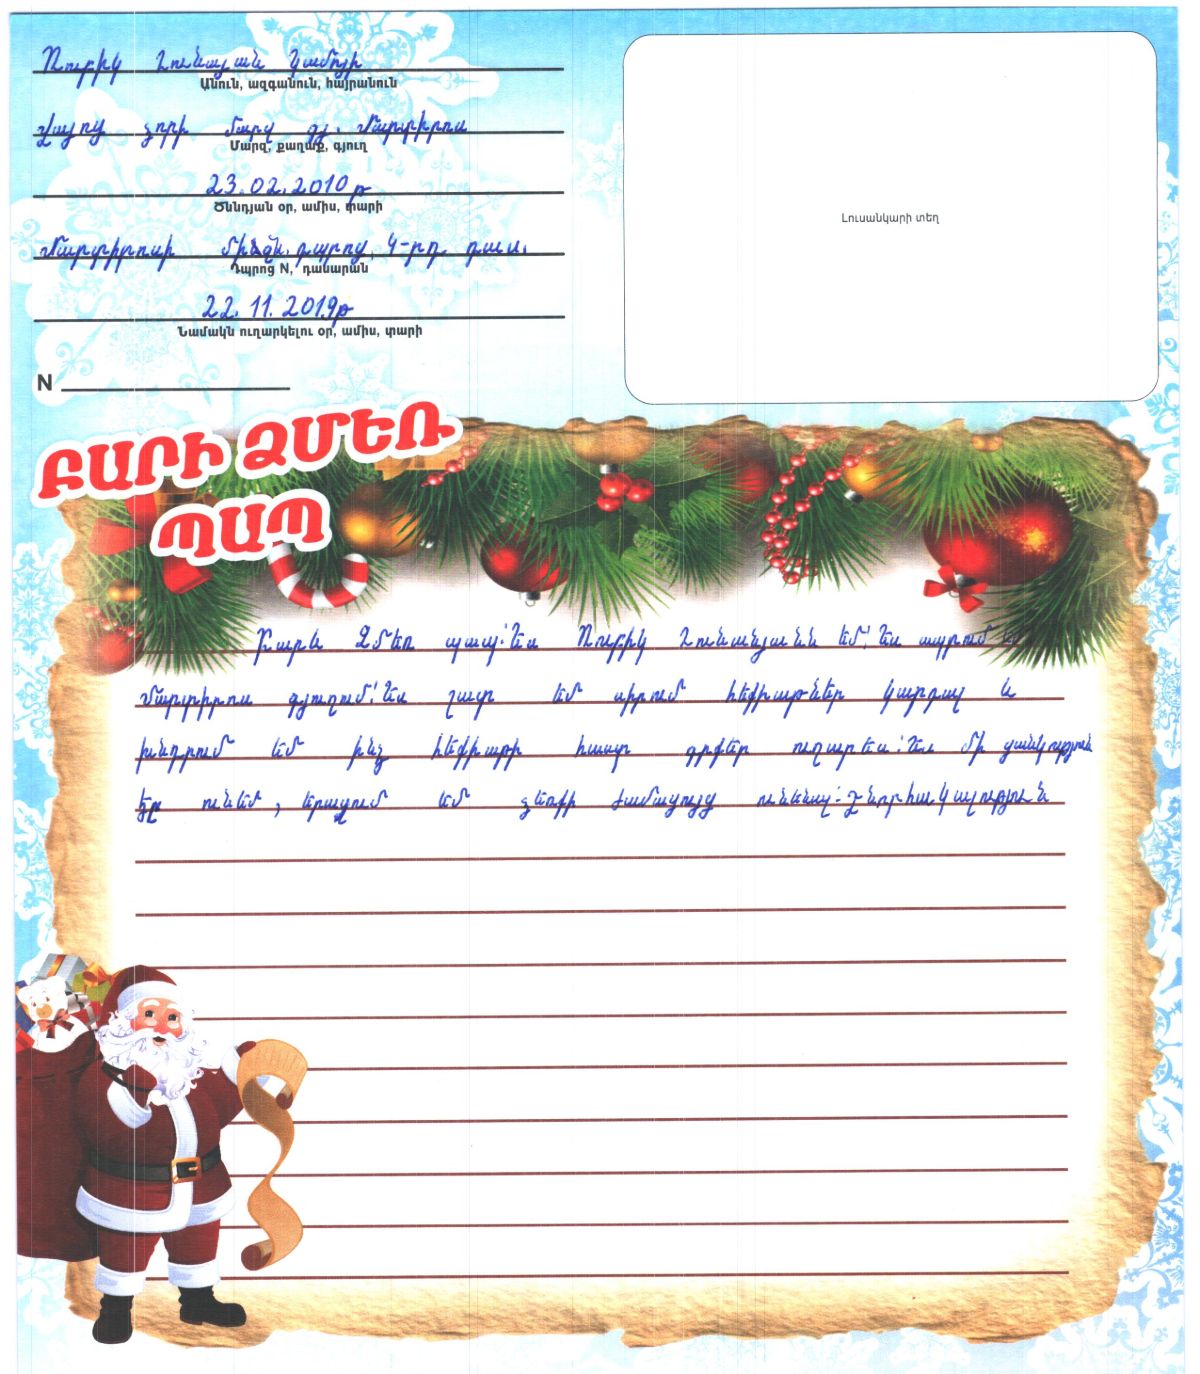 Ռուբիկ Հունանյան Կամոյի
Անուն, ազգանուն, հայրանուն
Վայոց ձորի մարզ գյ. Մարտիրոս
Մարզ, քաղաք, գյուղ
23.02.2010թ
Ծննդյան օր, ամիս, տարի
Մարտիրոսի միջն. դպրոց, 4-րդ դաս.
Դպրոց N, դասարան
22.11.2019թ
Նամակն ուղարկելու օր, ամիս, տարի
N
Լուսանկարի տեղ
ԲԱՐԻ ՁՄԵՌ
ՊԱՊ
Բարև Ձմեռ պապ: Ես Ռուբիկ Հունանյանն եմ: Ես ապրում եմ
Մարտիրոս գյուղում: Ես շատ եմ սիրում հեքիաթներ կարդալ և
խնդրում եմ ինձ հեքիաթի հաստ գրքեր ուղարկես: Ես մի ցանկություն
էլ ունեմ, երազում եմ ձեռքի ժամացույց ունենալ: Շնորհակալություն